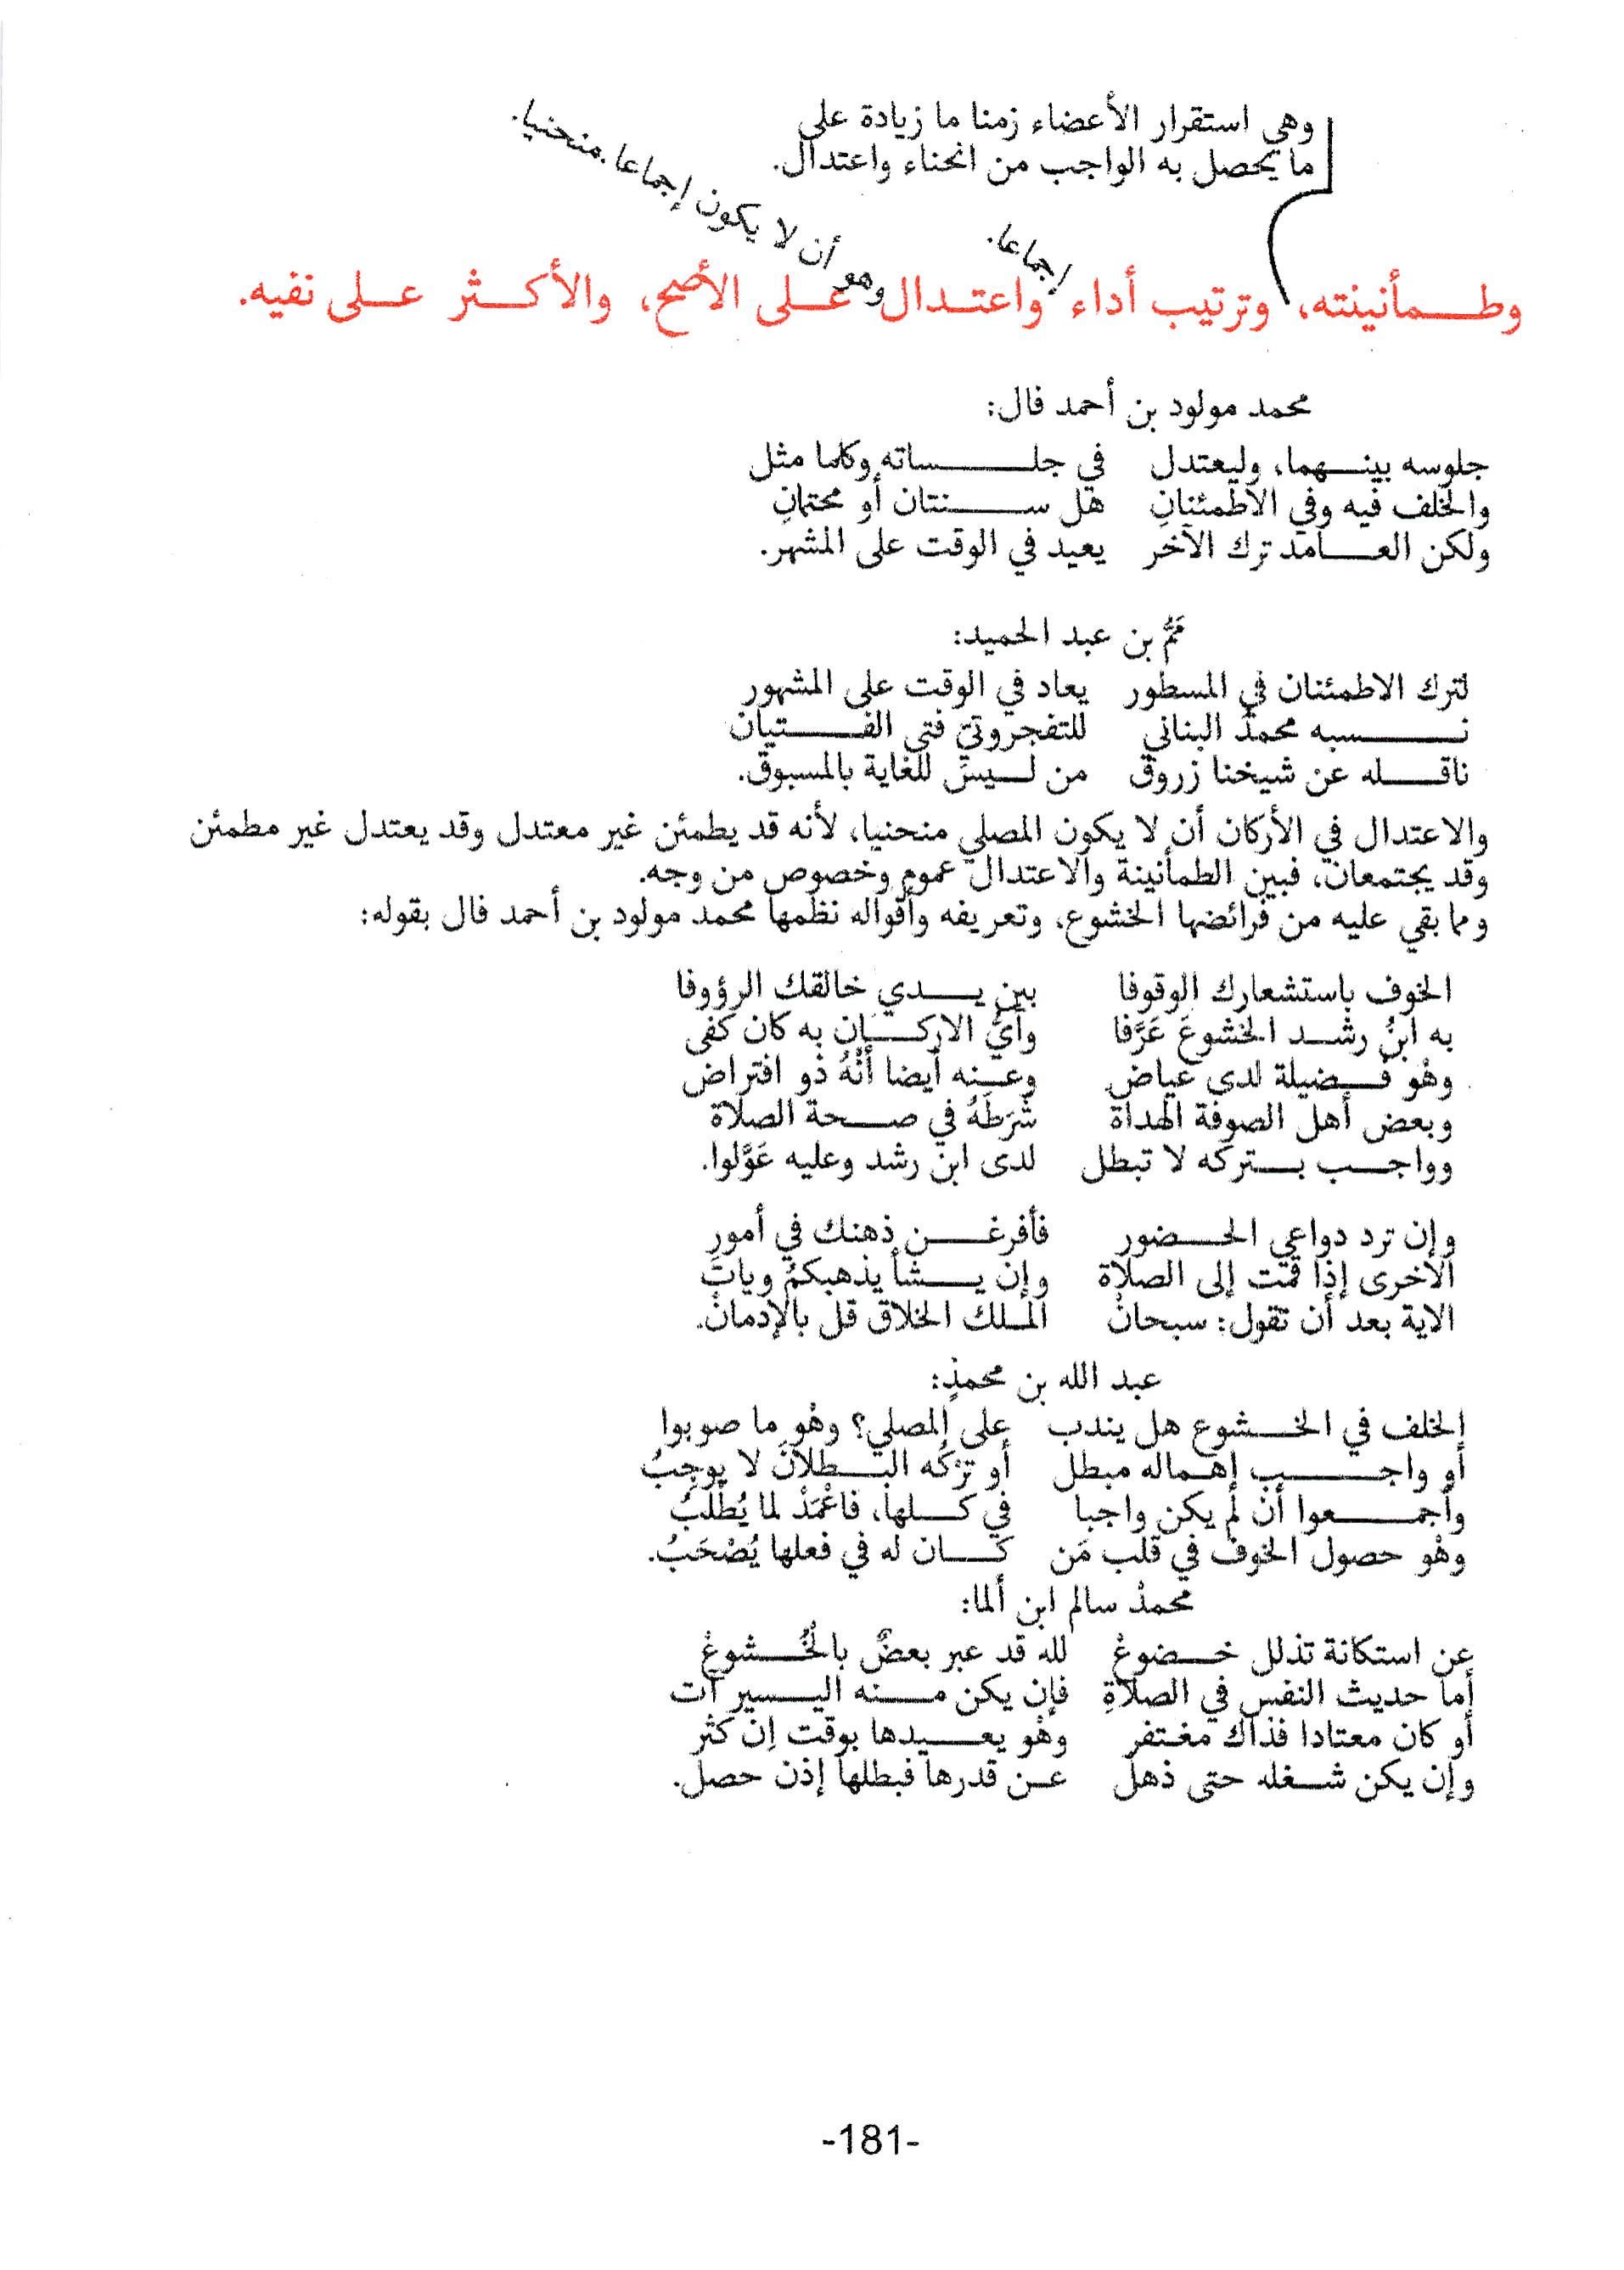 وهي استقرار الأعضاء زمنا ما زيادة على
ما يحصل به الواجب من انحناء واعتدال.
إجماعا.
وهو أن لا يكون إجماعا. منحنيا.
وطـمأنينته، وترتيب أداء واعتدال على الأصح، والأكثر على نفيه.
محمد مولود بن أحمد فال:
جلوسه بينهما، وليعتدل في جلساته وكلما مثل
والخلف فيه وفي الاطمئنانِ هل سنتان أو محتمانِ
ولكن العامد ترك الآخر يعيد في الوقت على المشهر.
مَمُّ بن عبد الحميد:
لترك الاطمئنان في المسطور يعاد في الوقت على المشهور
نسبه محمدٌ البناني للتفجروتيِّ فتى الفتيان
ناقله عن شيخنا زروق من ليسَ للغاية بالمسبوق.
والاعتدال في الأركان أن لا يكون المصلي منحنيا، لأنه قد يطمئن غير معتدل وقد يعتدل غير مطمئن
وقد يجتمعان، فبين الطمأنينة والاعتدال عموم وخصوص من وجه.
ومما بقي عليه من فرائضها الخشوع، وتعريفه وأقواله نظمها محمد مولود بن أحمد فال بقوله:
الخوف باستشعارك الوقوفا بين يدي خالقك الرؤوفا
به ابنُ رشد الخشوعَ عَرَّفا وأيُّ الاركان به كان كفى
وهْو فضيلة لدى عياض وعنه أيضا أنَّهُ ذو افتراض
وبعض أهل الصوفة الهداة شَرَطَهُ في صحة الصلاة
وواجب بتركه لا تبطل لدى ابن رشد وعليه عَوَّلوا.
وإن ترد دواعي الحضور فأفرغن ذهنك في أمورِ
الاخرى إذا قمت إلى الصلاة وإن يشأ يذهبكمُ وياتَ
الاية بعد أن تقول: سبحانْ الملك الخلاق قل بالإدمانْ.
عبد الله بن محمذٍ:
الخلف في الخشوع هل يندب على المصلي؟ وهْو ما صوبوا
أو واجب إهماله مبطل أو تَرْكُه البطلانَ لا يوجِبُ
وأجمعوا أن لم يكن واجبا في كلها، فاعْمَدْ لما يُطْلَبُ
وهْو حصول الخوف في قلب مَن كان له في فعلها يُصْحَبُ.
محمذْ سالم ابن ألما:
عن استكانة تذلل خضوعْ لله قد عبر بعضٌ بالْخُشوعْ
أما حديث النفس في الصلاةِ فإن يكن منه اليسير آت
أو كان معتادا فذاك مغتفر وهْو يعيدها بوقت إن كثر
وإن يكن شغله حتى ذهل عن قدرها فبطلها إذن حصل.
-181-